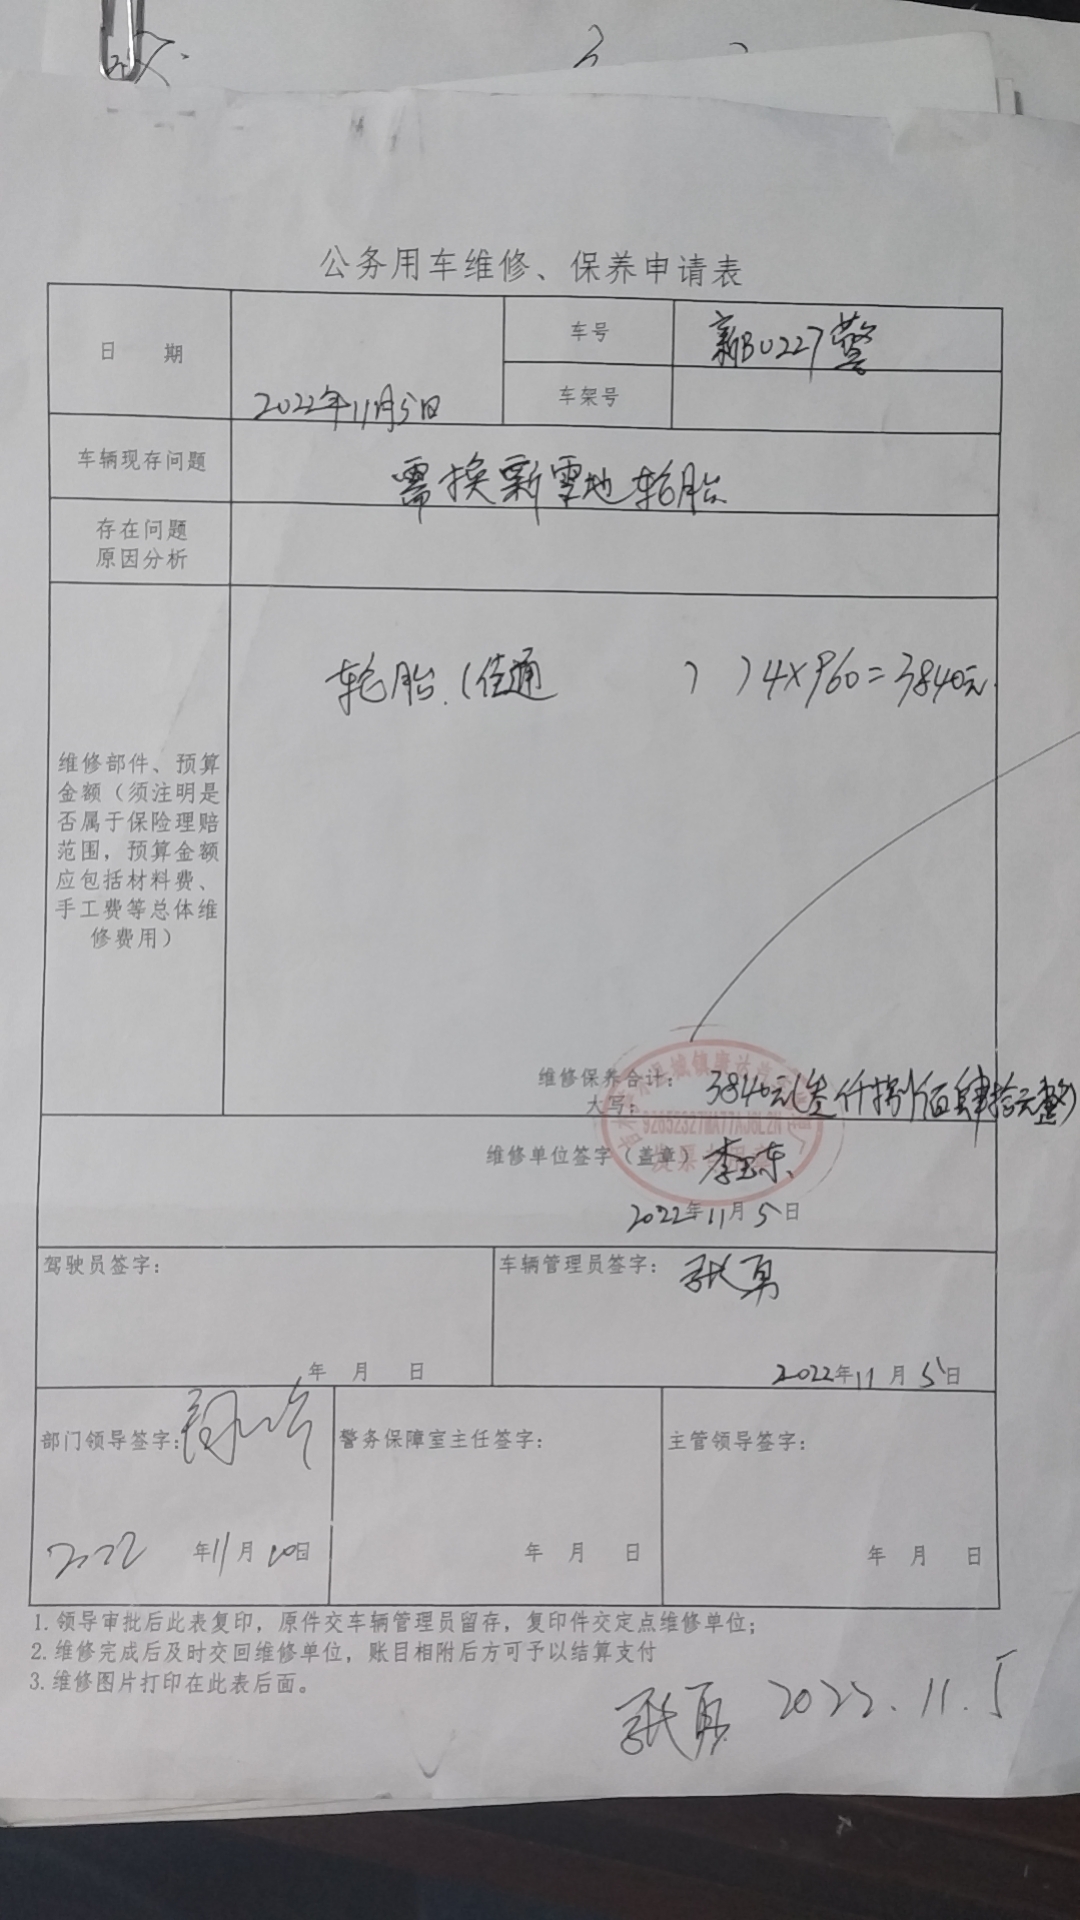 公务用车维修、保养申请表
日 期
2022年11月5日
车号
新B0227警
车架号
车辆现存问题
需换新雪地轮胎
存在问题
原因分析
维修部件、预算
金额（须注明是
否属于保险理赔
范围，预算金额
应包括材料费、
手工费等总体维
修费用）
轮胎（佳通 ） ）4×960=3840元
维修保养合计：
大写：
3840元（叁仟捌佰肆拾元整）
维修单位签字（盖章） 李玉东
2022年11月5日
驾驶员签字：
年 月 日
车辆管理员签字： 张勇
2022年11月5日
部门领导签字：
2022年11月10日
警务保障室主任签字：
年 月 日
主管领导签字：
年 月 日
1.领导审批后此表复印，原件交车辆管理员留存，复印件交定点维修单位；
2.维修完成后及时交回维修单位，账目相附后方可予以结算支付
3.维修图片打印在此表后面。
张勇 2022.11.5